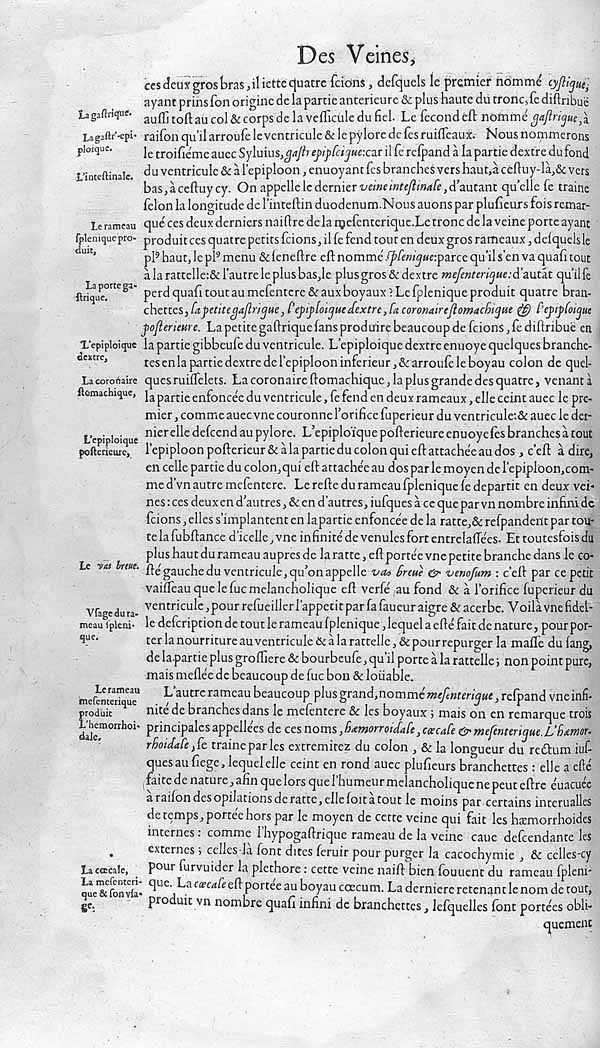 Des Veines,
ces deux gros bras, il iette quatre ſcions, deſquels le premier nommé cyſtique,
ayant prins ſon origine de la partie anterieure & plus haute du tronc, ſe diſtribuë
La gaſtrique.
auſſi toſt au col & corps de la veſſicule du fiel. Le ſecond eſt nommé gaſtrique, à
La gaſtr'-epiploique.
raiſon qu'il arrouſe le ventricule & le pylore de ſes ruiſſeaux. Nous nommerons
le troiſiéme auec Syluius, gaſtrepipſoique: car il ſe reſpand à la partie dextre du fond
L'inteſtinale.
du ventricule & à l'epiploon, enuoyant ſes branches vers haut, à ceſtuy-là, & vers
bas, à ceſtuy cy. On appelle le dernier veine inteſtinale, d'autant qu'elle ſe traine
ſelon la longitude de l'inteſtin duodenum. Nous auons par pluſieurs fois remar-
Le rameau ſplenique produit,
qué ces deux derniers naiſtre de la meſenterique. Le tronc de la veine porte ayant
produit ces quatre petits ſcions, il ſe fend tout en deux gros rameaux, deſquels le
plꝰ haut, le plꝰ menu & ſeneſtre eſt nommé ſplenique: parce qu'il s'en va quaſi tout
à la rattelle: & l'autre le plus bas, le plus gros & dextre meſenterique: d'autāt qu'il ſe
La porte gaſtrique.
perd quaſi tout au meſentere & aux boyaux? Le ſplenique produit quatre bran-
chettes, la petite gaſtrique, l'epiploique dextre, la coronaire ſtomachique & l'epiploique
poſterieure. La petite gaſtrique ſans produire beaucoup de ſcions, ſe diſtribuë en
L'epiploique dextre,
la partie gibbeuſe du ventricule. L'epiploique dextre enuoye quelques branche-
tes en la partie dextre de l'epiploon inferieur, & arrouſe le boyau colon de quel-
La coronaire ſtomachique,
ques ruiſſelets. La coronaire ſtomachique, la plus grande des quatre, venant à
la partie enfoncée du ventricule, ſe fend en deux rameaux, elle ceint auec le pre-
mier, comme auec vne couronne l'orifice ſuperieur du ventricule: & auec le der-
L'epiploique poſterieure,
nier elle deſcend au pylore. L'epiploïque poſterieure enuoye ſes branches à tout
l'epiploon poſterieur & à la partie du colon qui eſt attachée au dos, c'eſt à dire,
en celle partie du colon, qui eſt attachée au dos par le moyen de l'epiploon, com-
me d'vn autre meſentere. Le reſte du rameau ſplenique ſe departit en deux vei-
nes: ces deux en d'autres, & en d'autres, iuſques à ce que par vn nombre infini de
ſcions, elles s'implantent en la partie enfoncée de la ratte, & reſpandent par tou-
te la ſubſtance d'icelle, vne infinité de venules fort entrelaſſées. Et toutesfois du
Le vas breue.
plus haut du rameau aupres de la ratte, eſt portée vne petite branche dans le co-
ſté gauche du ventricule, qu'on appelle vas breuè & venoſum: c'eſt par ce petit
vaiſſeau que le ſuc melancholique eſt verſé au fond & à l'orifice ſuperieur du
Vſage du rameau ſplenique.
ventricule, pour reſueiller l'appetit par ſa ſaueur aigre & acerbe. Voilà vne fidel-
le deſcription de tout le rameau ſplenique, lequel a eſté fait de nature, pour por-
ter la nourriture au ventricule & à la rattelle, & pour repurger la maſſe du ſang,
de la partie plus groſſiere & bourbeuſe, qu'il porte à la rattelle; non point pure,
mais meſlée de beaucoup de ſuc bon & loüable.
Le rameau meſenterique produit
L'autre rameau beaucoup plus grand, nommé meſenterique, reſpand vne infi-
nité de branches dans le meſentere & les boyaux; mais on en remarque trois
L'hemorrhoidale.
principales appellées de ces noms, hæmorroidale, cœcale & meſenterique. L'hæmor-
rhoidale, ſe traine par les extremitez du colon, & la longueur du rectum iuſ-
ques au ſiege, lequel elle ceint en rond auec pluſieurs branchettes: elle a eſté
faite de nature, afin que lors que l'humeur melancholique ne peut eſtre éuacuée
à raiſon des opilations de ratte, elle ſoit à tout le moins par certains interualles
de temps, portée hors par le moyen de cette veine qui fait les hæmorrhoides
internes: comme l'hypogaſtrique rameau de la veine caue deſcendante les
externes; celles-là ſont dites ſeruir pour purger la cacochymie, & celles-cy
La cœcale,
pour ſuruuider la plethore: cette veine naiſt bien ſouuent du rameau ſpleni-
La meſenterique & ſon vſage.
que. La cœcale eſt portée au boyau cœcum. La derniere retenant le nom de tout,
produit vn nombre quaſi infini de branchettes, leſquelles ſont portées obli-
quement